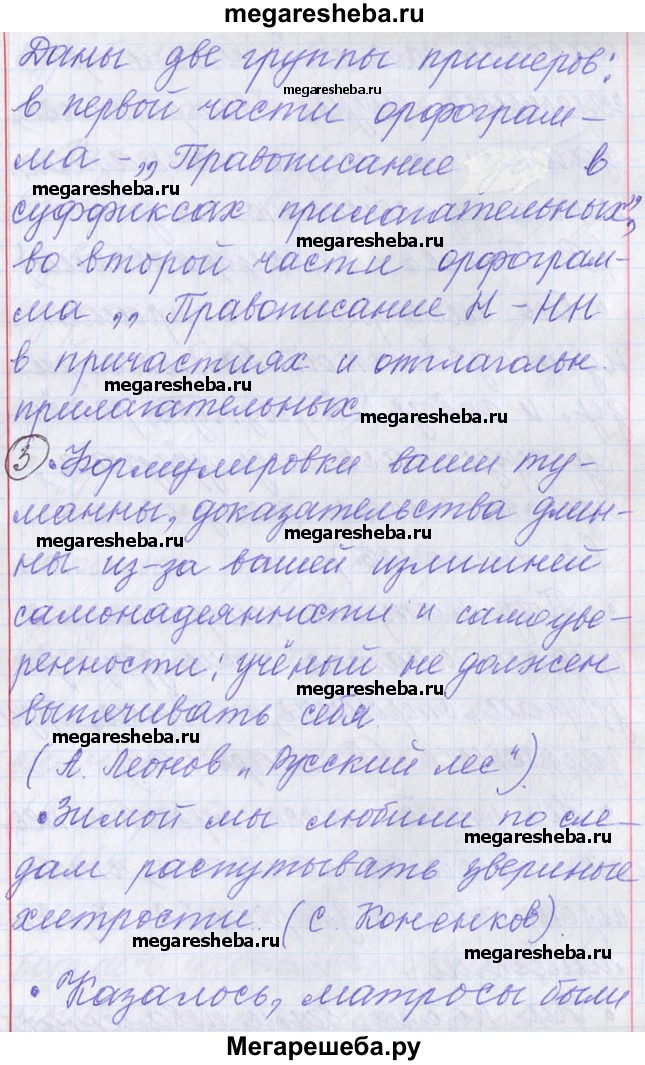 megaresheba.ru
Даны две группы примеров:
megaresheba.ru
в первой части орфограм-
ма - „Правописание в
megaresheba.ru
суффиксах прилагательных",
megaresheba.ru
во второй части орфограм-
ма „Правописание Н - НН
в причастиях и отглагольн.
megaresheba.ru
прилагательных
megaresheba.ru
3 • Формулировки ваши ту-
манны, доказательства длин-
megaresheba.ru megaresheba.ru
ны из-за вашей излишней
самонадеянности и самоуве-
ренности: учёный не должен
megaresheba.ru
выпячивать себя
megaresheba.ru
(А. Леонов „Русский лес").
• Зимой мы любили по сле-
megaresheba.ru
дам распутывать звериные
хитрости (С. Коненков).
megaresheba.ru megaresheba.ru
• Казалось, матросы были
Мегарешеба.ру